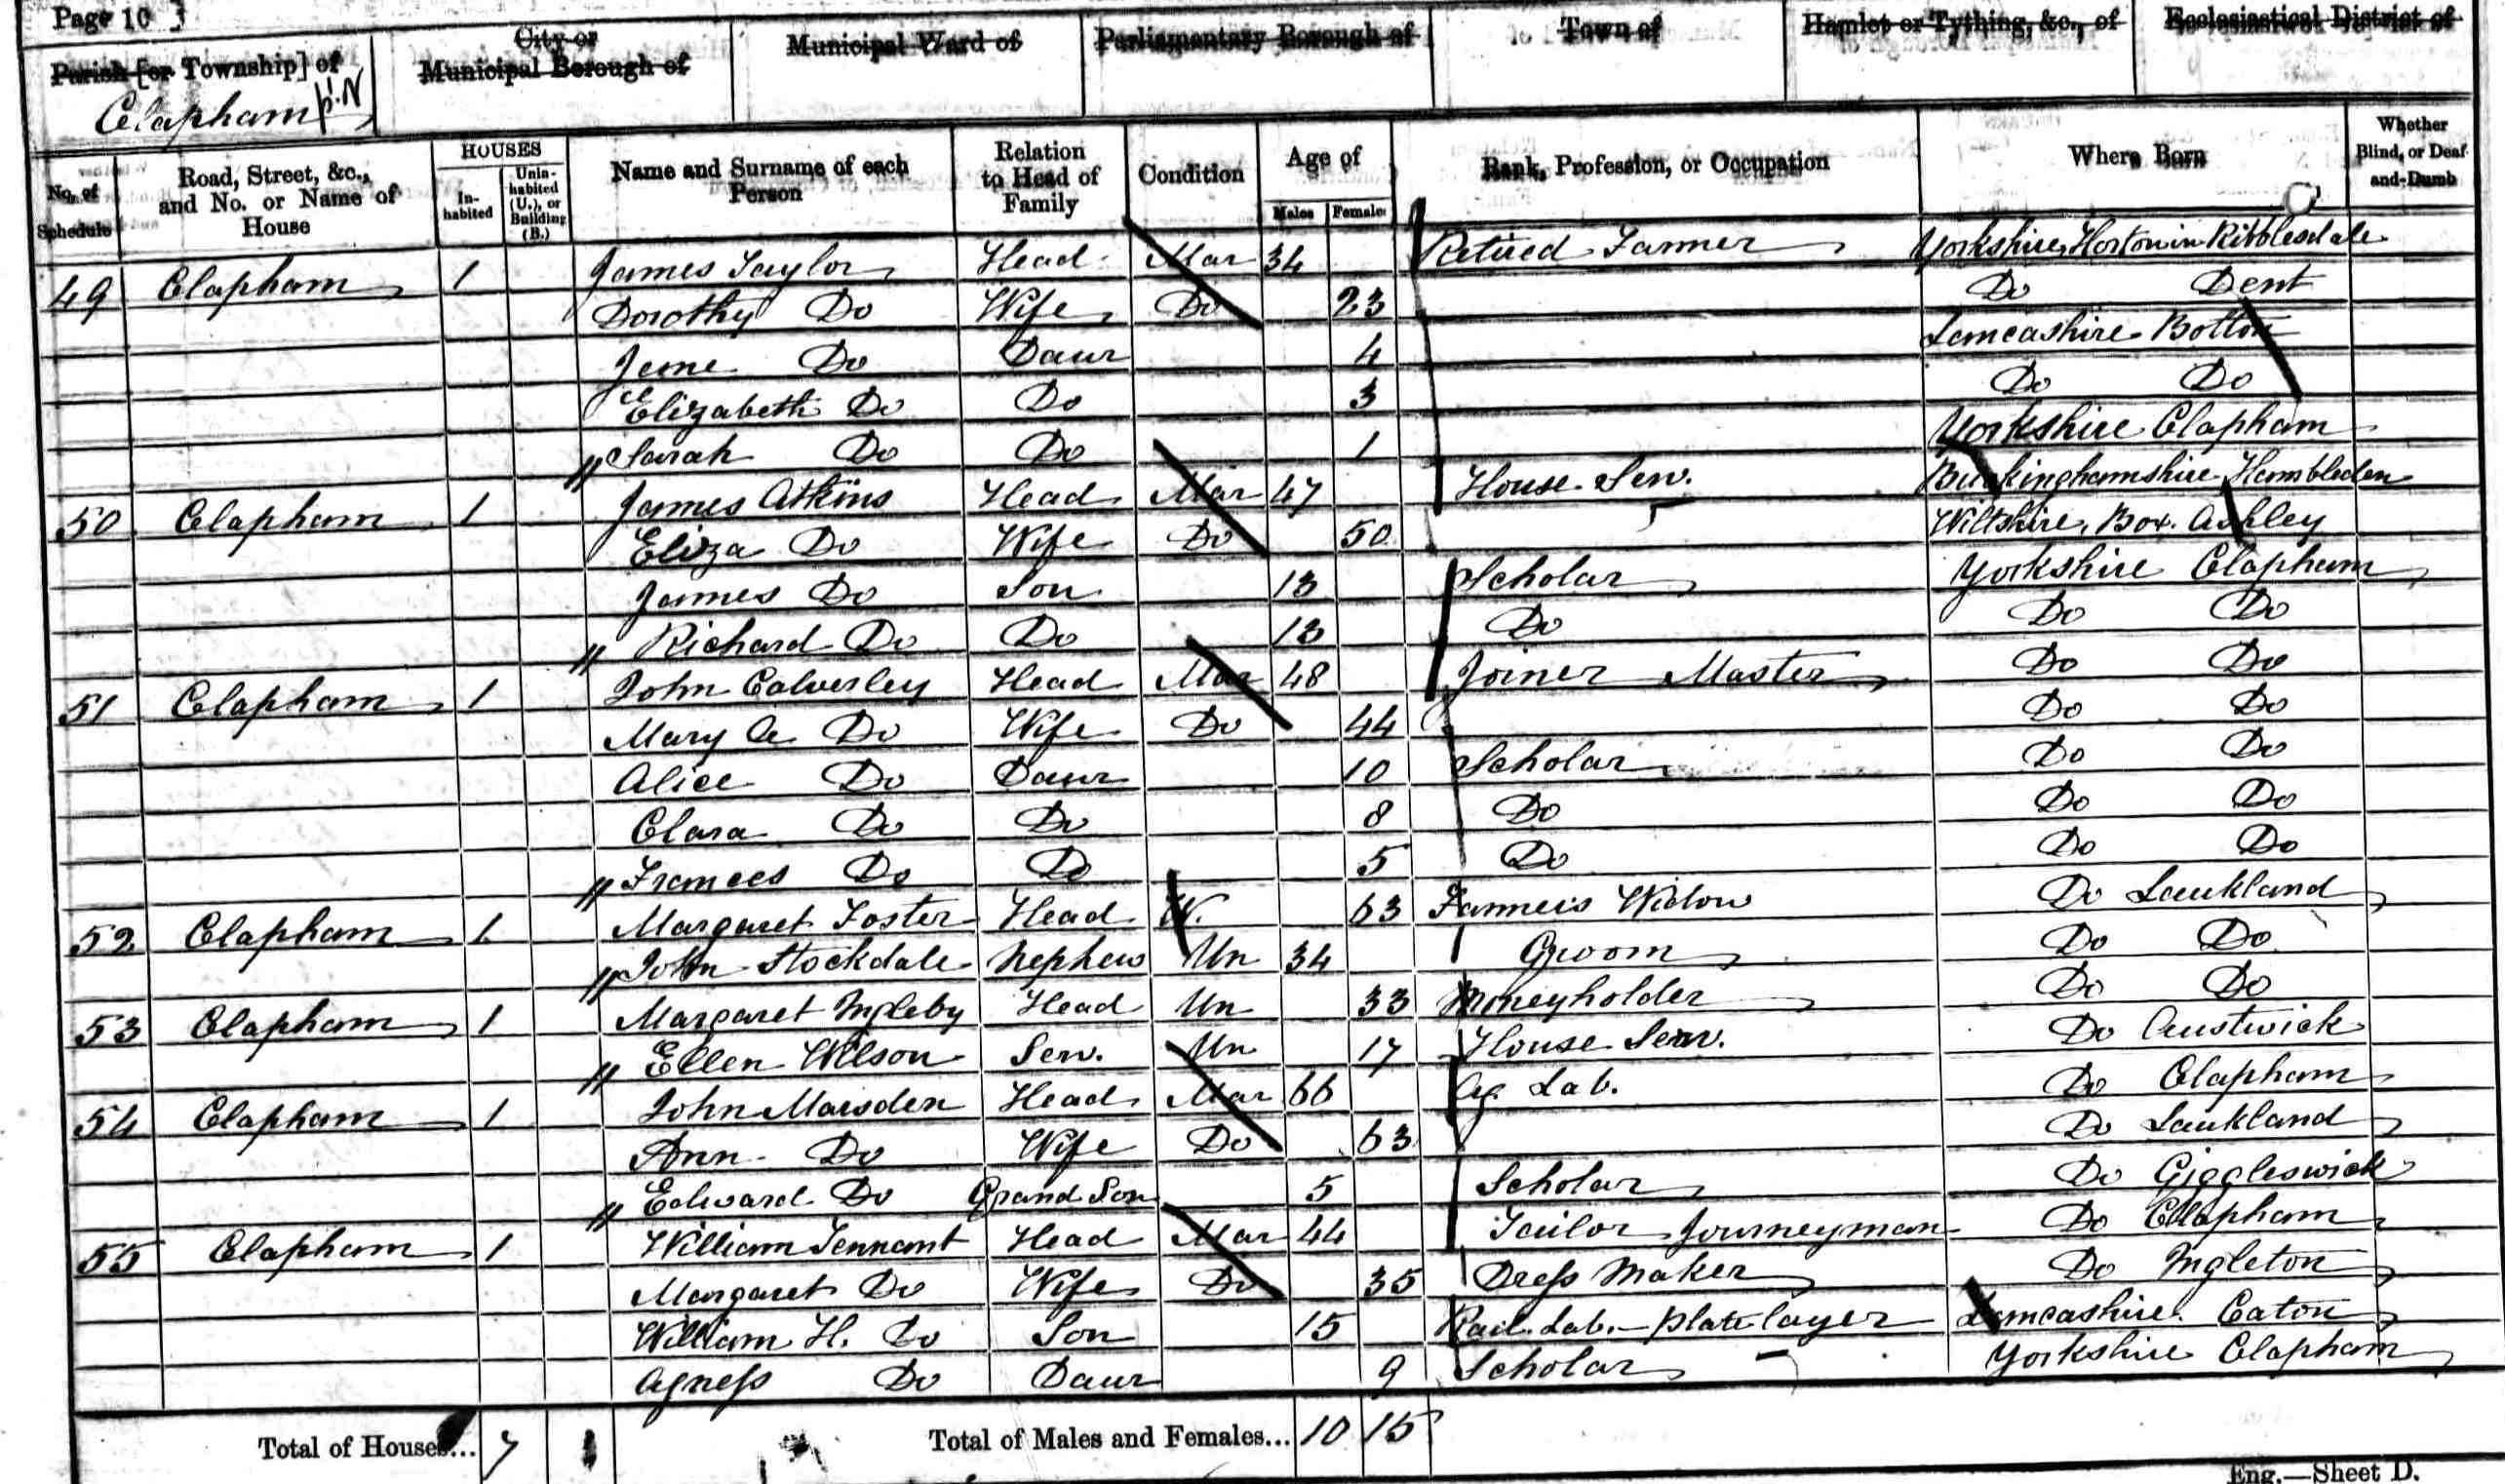 Page 10
Parish [or Township] of
City or Municipal Borough of
Municipal Ward of
Parliamentary Borough of
Town of
Hamlet or Tything, &c., of
Ecclesiastical District of
Clapham pt. N
No. of Schedule
Road, Street, &c., and No. or Name of House
HOUSES
Inhabited
Uninhabited (U.), or Building (B.)
Name and Surname of each Person
Relation to Head of Family
Condition
Age of
Males Females
Rank, Profession, or Occupation
Where Born
Whether Blind, or Deaf-and-Dumb
49 Clapham 1 James Taylor Head Mar 34 Retired Farmer Yorkshire, Horton in Ribblesdale
Dorothy Do Wife Do 23 Do Dent
Jane Do Daur 4 Lancashire Bolton
Elizabeth Do Do 3 Do Do
" Sarah Do Do 1 Yorkshire Clapham
50 Clapham 1 James Atkins Head Mar 47 House Serv. Buckinghamshire Hambleden
Eliza Do Wife Do 50 Wiltshire, Box. Ashley
James Do Son 13 Scholar Yorkshire Clapham
" Richard Do Do 13 Do Do Do
51 Clapham 1 John Calverley Head Mar 48 Joiner Master Do Do
Mary A Do Wife Do 44 Do Do
Alice Do Daur 10 Scholar Do Do
Clara Do Do 8 Do Do Do
" Frances Do Do 5 Do Do Do
52 Clapham 1 Margaret Foster Head W. 63 Farmer's Widow Do Laukland
" John Stockdale Nephew Un 34 Groom Do Do
53 Clapham 1 Margaret Ingleby Head Un 33 Moneyholder Do Do
" Ellen Wilson Serv. Un 17 House Serv. Do Austwick
54 Clapham 1 John Marsden Head Mar 66 Ag. Lab. Do Clapham
Ann Do Wife Do 63 Do Laukland
" Edward Do Grand Son 5 Scholar Do Giggleswick
55 Clapham 1 William Tennant Head Mar 44 Tailor Journeyman Do Clapham
Margaret Do Wife Do 35 Dress Maker Do Ingleton
William H. Do Son 15 Rail. Lab. - Plate layer Lancashire. Caton
Agness Do Daur 9 Scholar Yorkshire Clapham
Total of Houses... 7
Total of Males and Females... 10 15
Eng.—Sheet D.